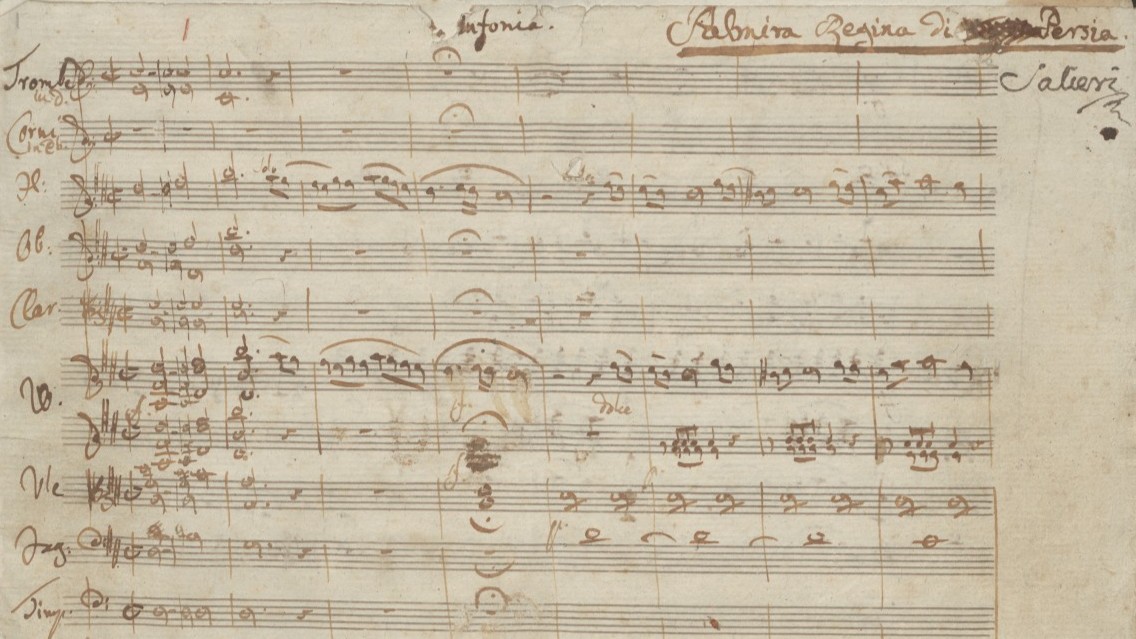 1
Sinfonia. Palmira Regina di Persia.
Trombe
in d. Salieri
Corni
Fl:
Ob:
Clar:
VV.
dolce
Vle
Fag:
Timp.